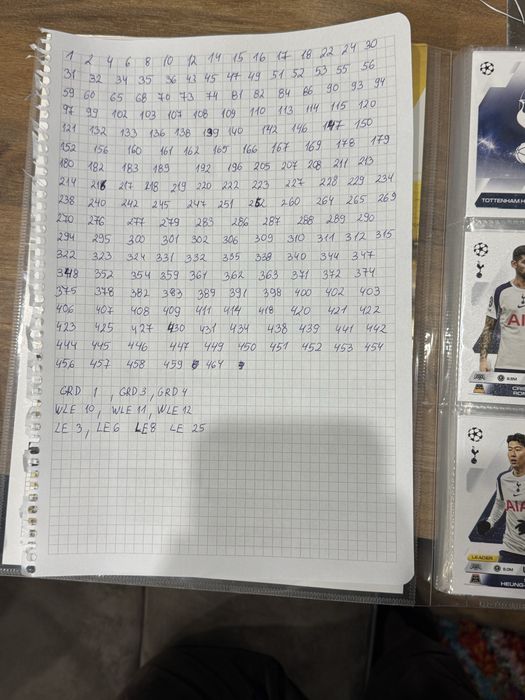 1 2 4 6 8 10 12 14 15 16 17 18 22 24 30
31 32 34 35 36 43 45 47 49 51 52 53 55 56
59 60 65 68 70 73 74 81 82 84 86 90 93 94
97 99 102 103 107 108 109 110 113 114 115 120
121 132 133 136 138 139 140 142 146 147 150
152 156 160 161 162 165 166 167 169 178 179
180 182 183 189 192 196 205 207 208 211 213
214 216 217 218 219 220 222 223 227 228 229 234
238 240 242 245 247 251 252 260 264 265 269
270 276 277 279 283 286 287 288 289 290
294 295 300 301 302 306 309 310 311 312 315
322 323 324 331 332 335 338 340 344 347
348 352 354 359 361 362 363 371 372 374
375 378 382 383 389 391 398 400 402 403
406 407 408 409 411 414 418 420 421 422
423 425 427 430 431 434 438 439 441 442
444 445 446 447 449 450 451 452 453 454
456 457 458 459 464
GRD 1 , GRD 3, GRD 4
WLE 10, WLE 11, WLE 12
LE 3, LE 6 LE 8 LE 25
TOTTENHAM H
AIA
CRI
RO
AIA
LEADER
HEUNG-